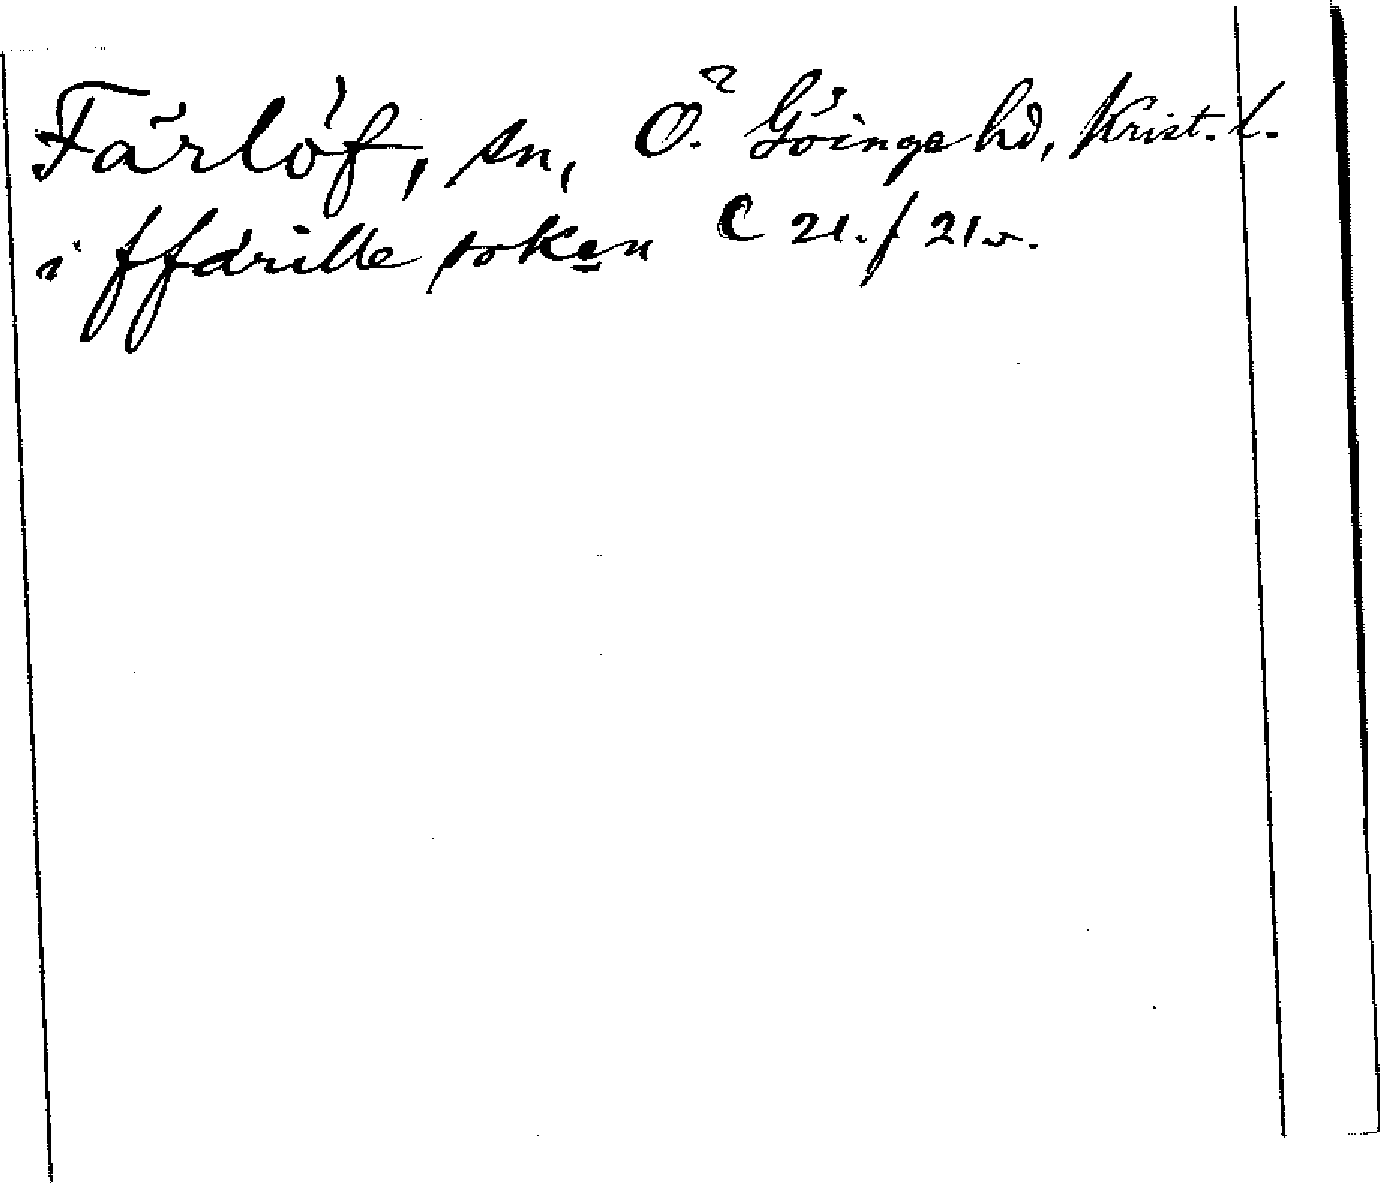 Färlöf, sn, Ö. Göinge hd, Krist. l.
i ffärille soken C 21. / 21 v.